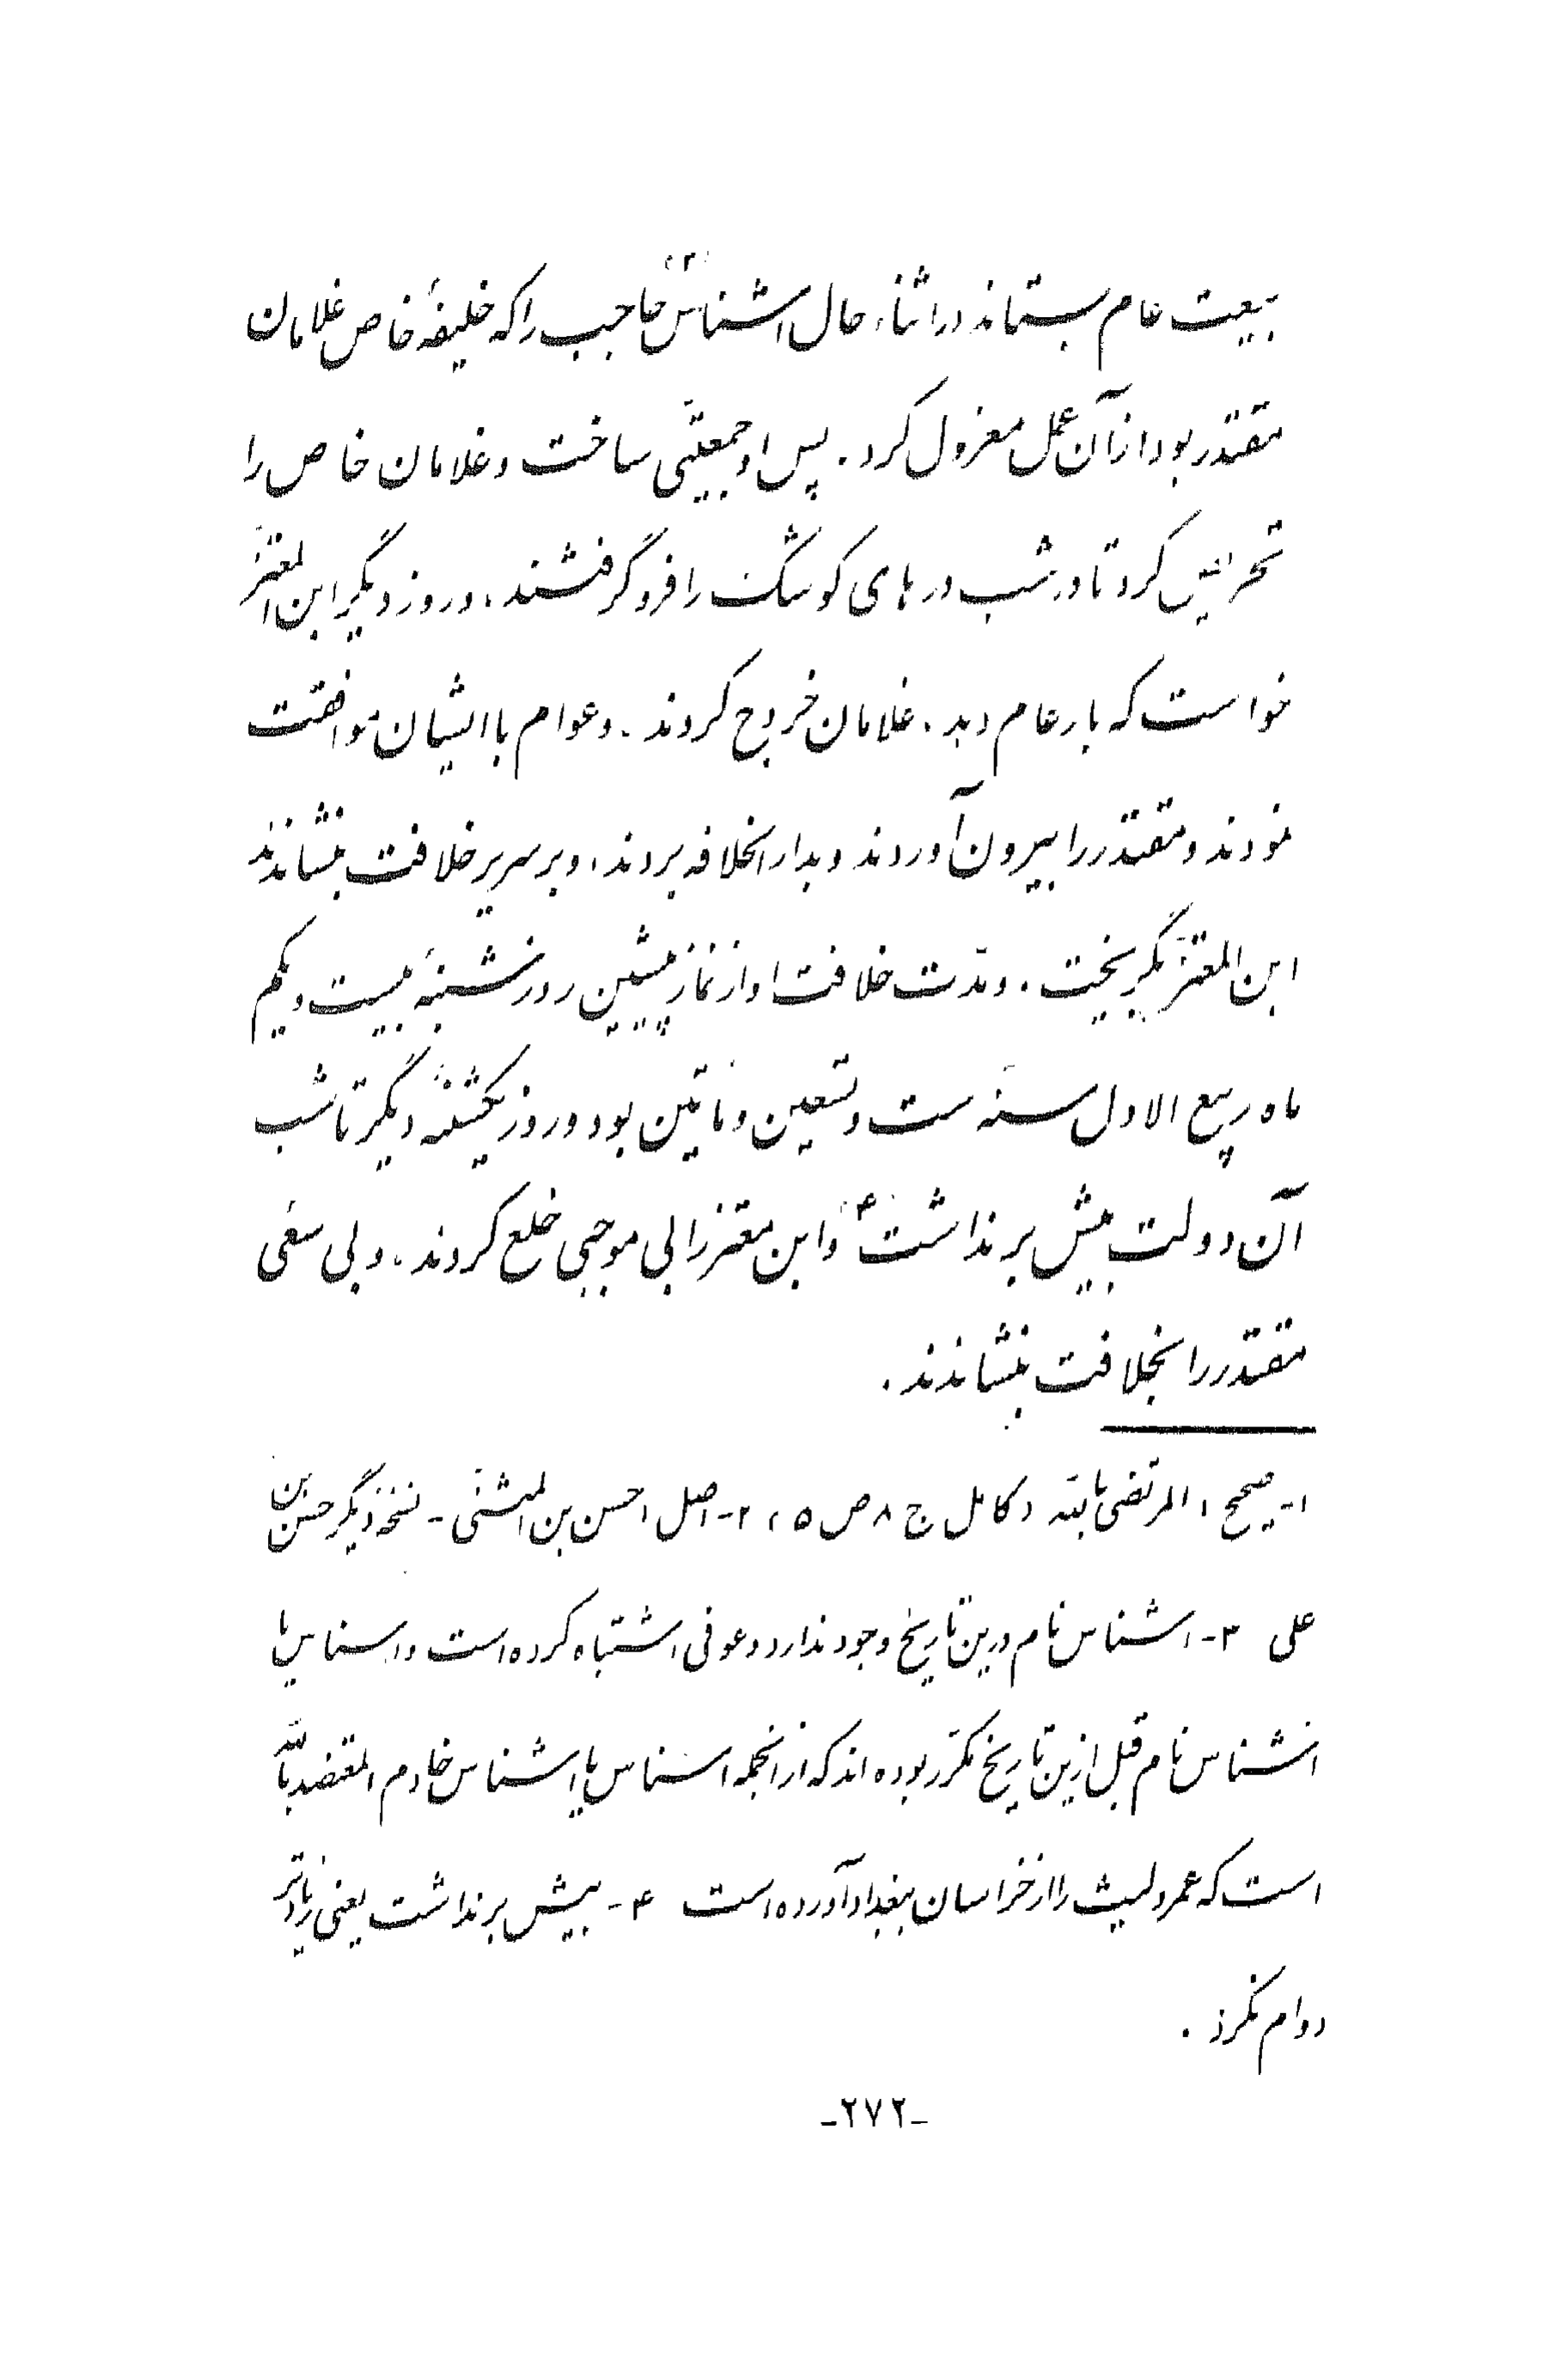 بیعت عام بستاند در اثناء حال اشناس (۳) حاجب را که خلیفهٔ خاص غلامان
مقتدر بود از آن عمل معزول کرد . پس او جمعیّتی ساخت و غلامان خاص را
تحریض کرد تا در شب درهای کوشک را فرو گرفتند ، و روز دیگر ابن المعتزّ
خواست که بار عام دهد . غلامان خروج کردند . و عوام با ایشان موافقت
نمودند و مقتدر را بیرون آوردند و بدار الخلافه بردند ، و بر سریر خلافت بنشاندند
ابن المعتزّ بگریخت . و مدّت خلافت او از نماز پیشین روز شنبهٔ بیست و یکم
ماه ربیع الاول سنهٔ ست و تسعین و مأتین بود و روز یکشنبهٔ دیگر تا شب
آن دولت بیش بر نداشت (۴) و ابن معتز را بی موجبی خلع کردند ، و بی سعی
مقتدر را بخلافت بنشاندند .
۱- صحیح ، المرتضی بالله ، کامل ج ۸ ص ۵ ، ۲- اصل ، حسن بن المثنّی - نسخهٔ دیگر حسن بن
علی ۳- اشناس نام درین تاریخ وجود ندارد و عوفی اشتباه کرده است و اسناس یا
اشناس نام قبل ازین تاریخ مکرّر بوده اند که از انجمله اسناس یا اشناس خادم المعتضد بالله
است که عمرو لیث را از خراسان ببغداد آورده است ۴- بیش بر نداشت یعنی زیادتر
دوام نکرد .
-۲۷۲-